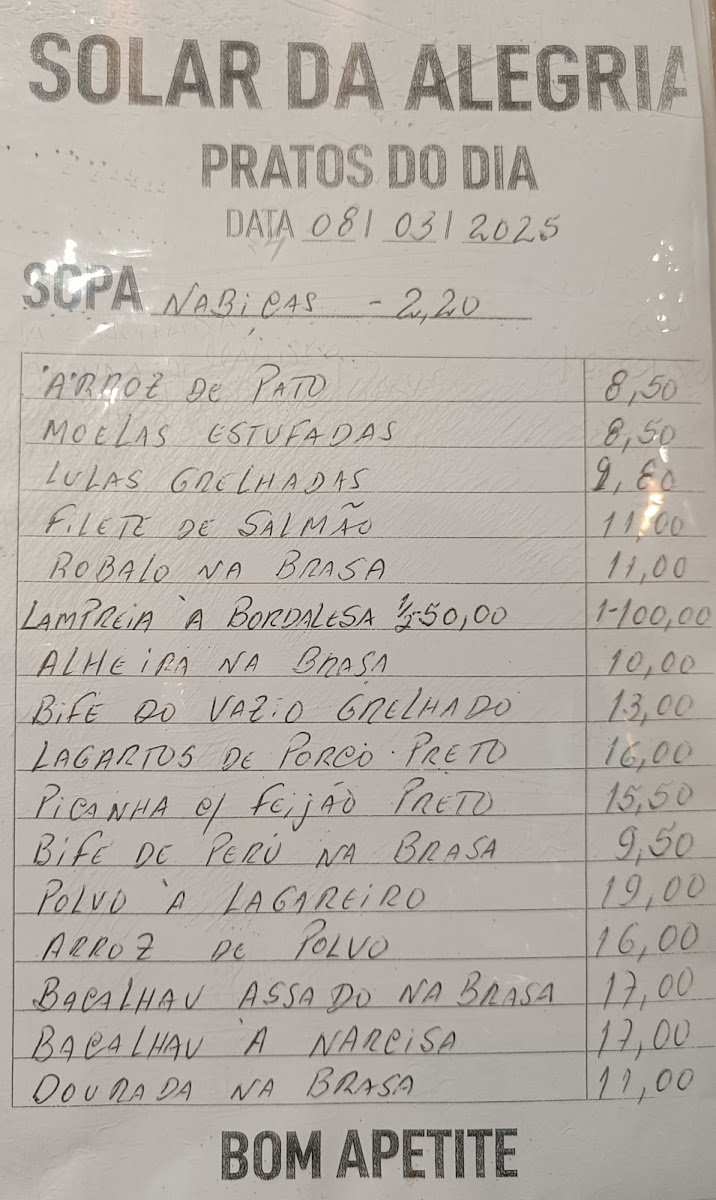 SOLAR DA ALEGRIA
PRATOS DO DIA
DATA 08/ 03/ 2025
SOPA NABIÇAS - 2,20
ARROZ DE PATO 8,50
MOELAS ESTUFADAS 8,50
LULAS GRELHADAS
FILETE DE SALMÃO 11,00
ROBALO NA BRASA 11,00
LAMPREIA À BORDALESA 1/2-50,00 1-100,00
ALHEIRA NA BRASA 10,00
BIFE DO VAZIO GRELHADO 13,00
LAGARTOS DE PORCO PRETO 16,00
PICANHA C/ FEIJÃO PRETO 15,50
BIFE DE PERÚ NA BRASA 9,50
POLVO À LAGAREIRO 19,00
ARROZ DE POLVO 16,00
BACALHAU ASSADO NA BRASA 17,00
BACALHAU À NARCISA 17,00
DOURADA NA BRASA 11,00
BOM APETITE